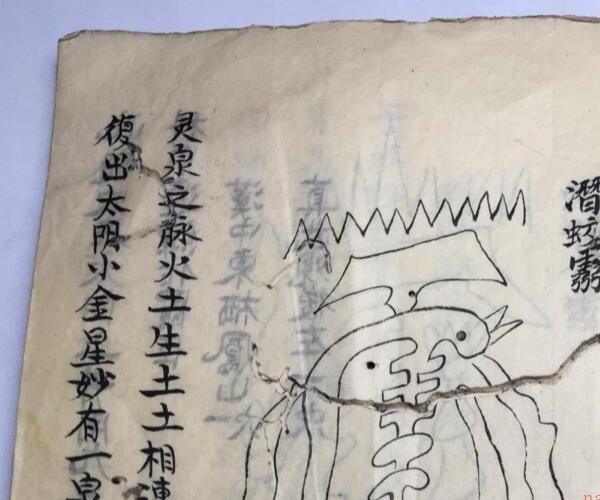 潛蛟霧
灵泉之脉火土生土土相連
復出太阴小金星妙有一泉